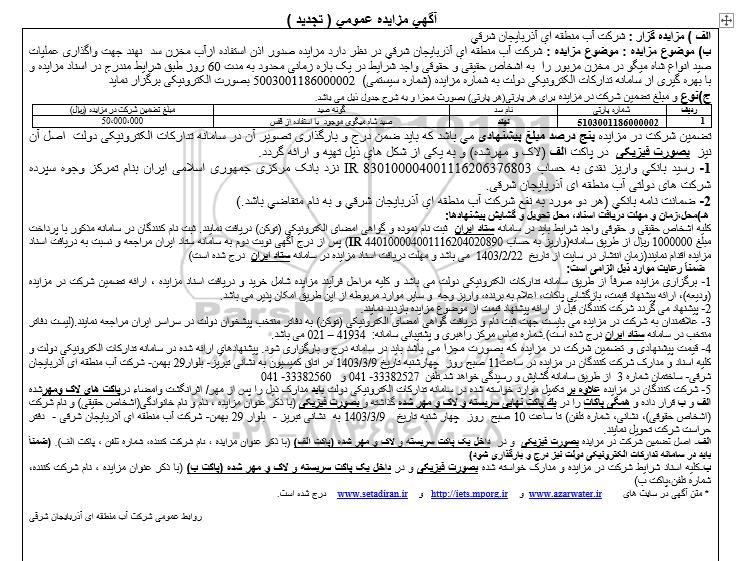 آگهي مزايده عمومي ( تجديد )
الف ) مزايده گزار : شرکت آب منطقه اي آذربايجان شرقي
ب) موضوع مزايده : موضوع مزايده : شرکت آب منطقه اي آذربايجان شرقي در نظر دارد مزايده صدور اذن استفاده ازآب مخزن سد نهند جهت واگذاری عملیات
صید انواع شاه میگو در مخزن مزبور را به اشخاص حقیقی و حقوقی واجد شرایط در یک بازه زمانی محدود به مدت 60 روز طبق شرایط مندرج در اسناد مزایده و
با بهره گیری از سامانه تدارکات الکترونیکی دولت به شماره مزایده (شماره سیستمی) 5003001186000002 بصورت الکترونیکی برگزار نماید
ج)نوع و مبلغ تضمین شرکت در مزایده برای هر پارتی(هر پارتی) بصورت مجزا و به شرح جدول ذیل می باشد.
ردیف شماره پارتی نام سد گونه صید مبلغ تضمین شرکت در مزایده (ریال)
1 5103001186000002 نهند صید شاه میگوی موجود با استفاده از قفس 50-000-000
تضمین شرکت در مزایده پنج درصد مبلغ پیشنهادی می باشد که باید ضمن درج و بارگذاری تصویر آن در سامانه تدارکات الکترونیکی دولت اصل آن
نیز بصورت فیزیکی در پاکت الف (لاک و مهرشده) و به یکی از شکل های ذیل تهیه و ارائه گردد.
1- رسید بانکي واریز نقدی به حساب IR 830100004001116206376803 نزد بانک مرکزی جمهوری اسلامی ایران بنام تمرکز وجوه سپرده
شرکت های دولتی آب منطقه ای آذربایجان شرقی.
2- ضمانت نامه بانکي (هر دو مورد به نفع شرکت آب منطقه ای آذربایجان شرقی و به نام متقاضي باشد.)
هـ)محل،زمان و مهلت دریافت اسناد، محل تحویل و گشایش پیشنهادها:
کلیه اشخاص حقیقی و حقوقی واجد شرایط باید در سامانه ستاد ایران ثبت نام نموده و گواهی امضای الکترونیکی (توکن) دریافت نمایند. ثبت نام کنندگان در سامانه مذکور با پرداخت
مبلغ 1000000 ریال از طریق سامانه(واریز به حساب IR 440100004001116204020890) پس از درج آگهی نوبت دوم به سامانه ستاد ایران مراجعه و نسبت به دریافت اسناد
مزایده اقدام نمایند(زمان انتشار در سایت از تاریخ 1403/2/22 می باشد و مهلت دریافت اسناد مزایده در سامانه ستاد ایران درج شده است)
ضمناً رعایت موارد ذیل الزامی است:
1- برگزاری مزایده صرفاً از طریق سامانه تدارکات الکترونیکی دولت می باشد و کلیه مراحل فرآیند مزایده شامل خرید و دریافت اسناد مزایده ، ارائه تضمین شرکت در مزایده
(ودیعه)، ارائه پیشنهاد قیمت، بازگشایی پاکات، اعلام به برنده، واریز وجه و سایر موارد مربوطه از این طریق امکان پذیر می باشد.
2- پیشنهاد می گردد شرکت کنندگان قبل از ارائه پیشنهاد قیمت از موضوع مزایده بازدید نمایند.
3- علاقمندان به شرکت در مزایده می بایست جهت ثبت نام و دریافت گواهی امضای الکترونیکی (توکن) به دفاتر منتخب پیشخوان دولت در سراسر ایران مراجعه نمایند.(لیست دفاتر
منتخب در سامانه ستاد ایران درج شده است).شماره تماس مرکز راهبری و پشتیبانی سامانه: 41934 – 021 می باشد.
4- قیمت پیشنهادی و تضمین شرکت در مزایده که بصورت مجزا می باشد باید در سامانه درج و بارگزاری شود. پیشنهادهای ارائه شده در سامانه تدارکات الکترونیکی دولت و
کلیه اسناد و مدارک شرکت کنندگان در مزایده در ساعت11 صبح روز چهار شنبه تاریخ 1403/3/9 در اتاق کمیسیون به نشانی تبریز- بلوار29 بهمن- شرکت آب منطقه ای آذربایجان
شرقی- ساختمان شماره 3 از طریق سامانه گشایش و رسیدگی خواهد شد.تلفن 33382527- 041 و 33382560- 041
5- شرکت کنندگان در مزایده علاوه بر تکمیل موارد خواسته شده در سامانه تدارکات الکترونیکی دولت باید مدارک ذیل را پس از مهر/ اثرانگشت وامضاء درپاکت های لاک ومهرشده
الف و ب قرار داده و همگی پاکات را در یك پاکت نهایی سربسته و لاک و مهر شده گذاشته و بصورت فیزیکی (با ذکر عنوان مزایده ، نام و نام خانوادگی(اشخاص حقیقی) و نام شرکت
(اشخاص حقوقی)، نشانی، شماره تلفن) تا ساعت 10 صبح روز چهار شنبه تاریخ 1403/3/9 به نشانی تبریز - بلوار 29 بهمن- شرکت آب منطقه ای آذربایجان شرقی - دفتر
حراست شرکت تحویل نمایند.
الف. اصل تضمین شرکت در مزایده بصورت فیزیکی و در داخل یک پاکت سربسته و لاک و مهر شده (پاکت الف) (با ذکر عنوان مزایده ، نام شرکت کننده، شماره تلفن ، پاکت الف). (ضمناً
باید در سامانه تدارکات الکترونیکی دولت نیز درج و بارگذاری شود)
ب.کلیه اسناد شرایط شرکت در مزایده و مدارک خواسته شده بصورت فیزیکی و در داخل یک پاکت سربسته و لاک و مهر شده (پاکت ب) (با ذکر عنوان مزایده ، نام شرکت کننده،
شماره تلفن،پاکت ب)
* متن آگهی در سایت های www.azarwater.ir و http://iets.mporg.ir و www.setadiran.ir درج شده است.
روابط عمومی شرکت آب منطقه ای آذربایجان شرقی